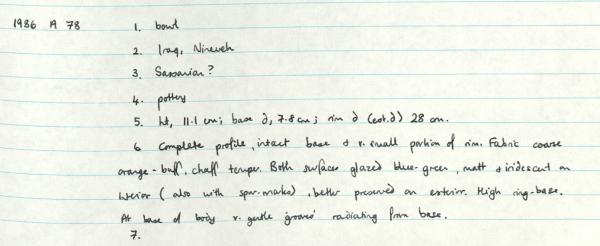 1986 A 78 1. bowl
2. Iraq, Nineveh
3. Sassanian?
4. pottery
5. ht, 11.1 cm; base d, 7.8 cm; rim d (est. d) 28 cm.
6 Complete profile, intact base & v. small portion of rim. Fabric coarse
orange-buff, chaff temper. Both surfaces glazed blue-green, matt & iridescent on
interior (also with spur-marks), better preserved on exterior. High ring-base.
At base of body v. gentle 'grooves' radiating from base.
7.